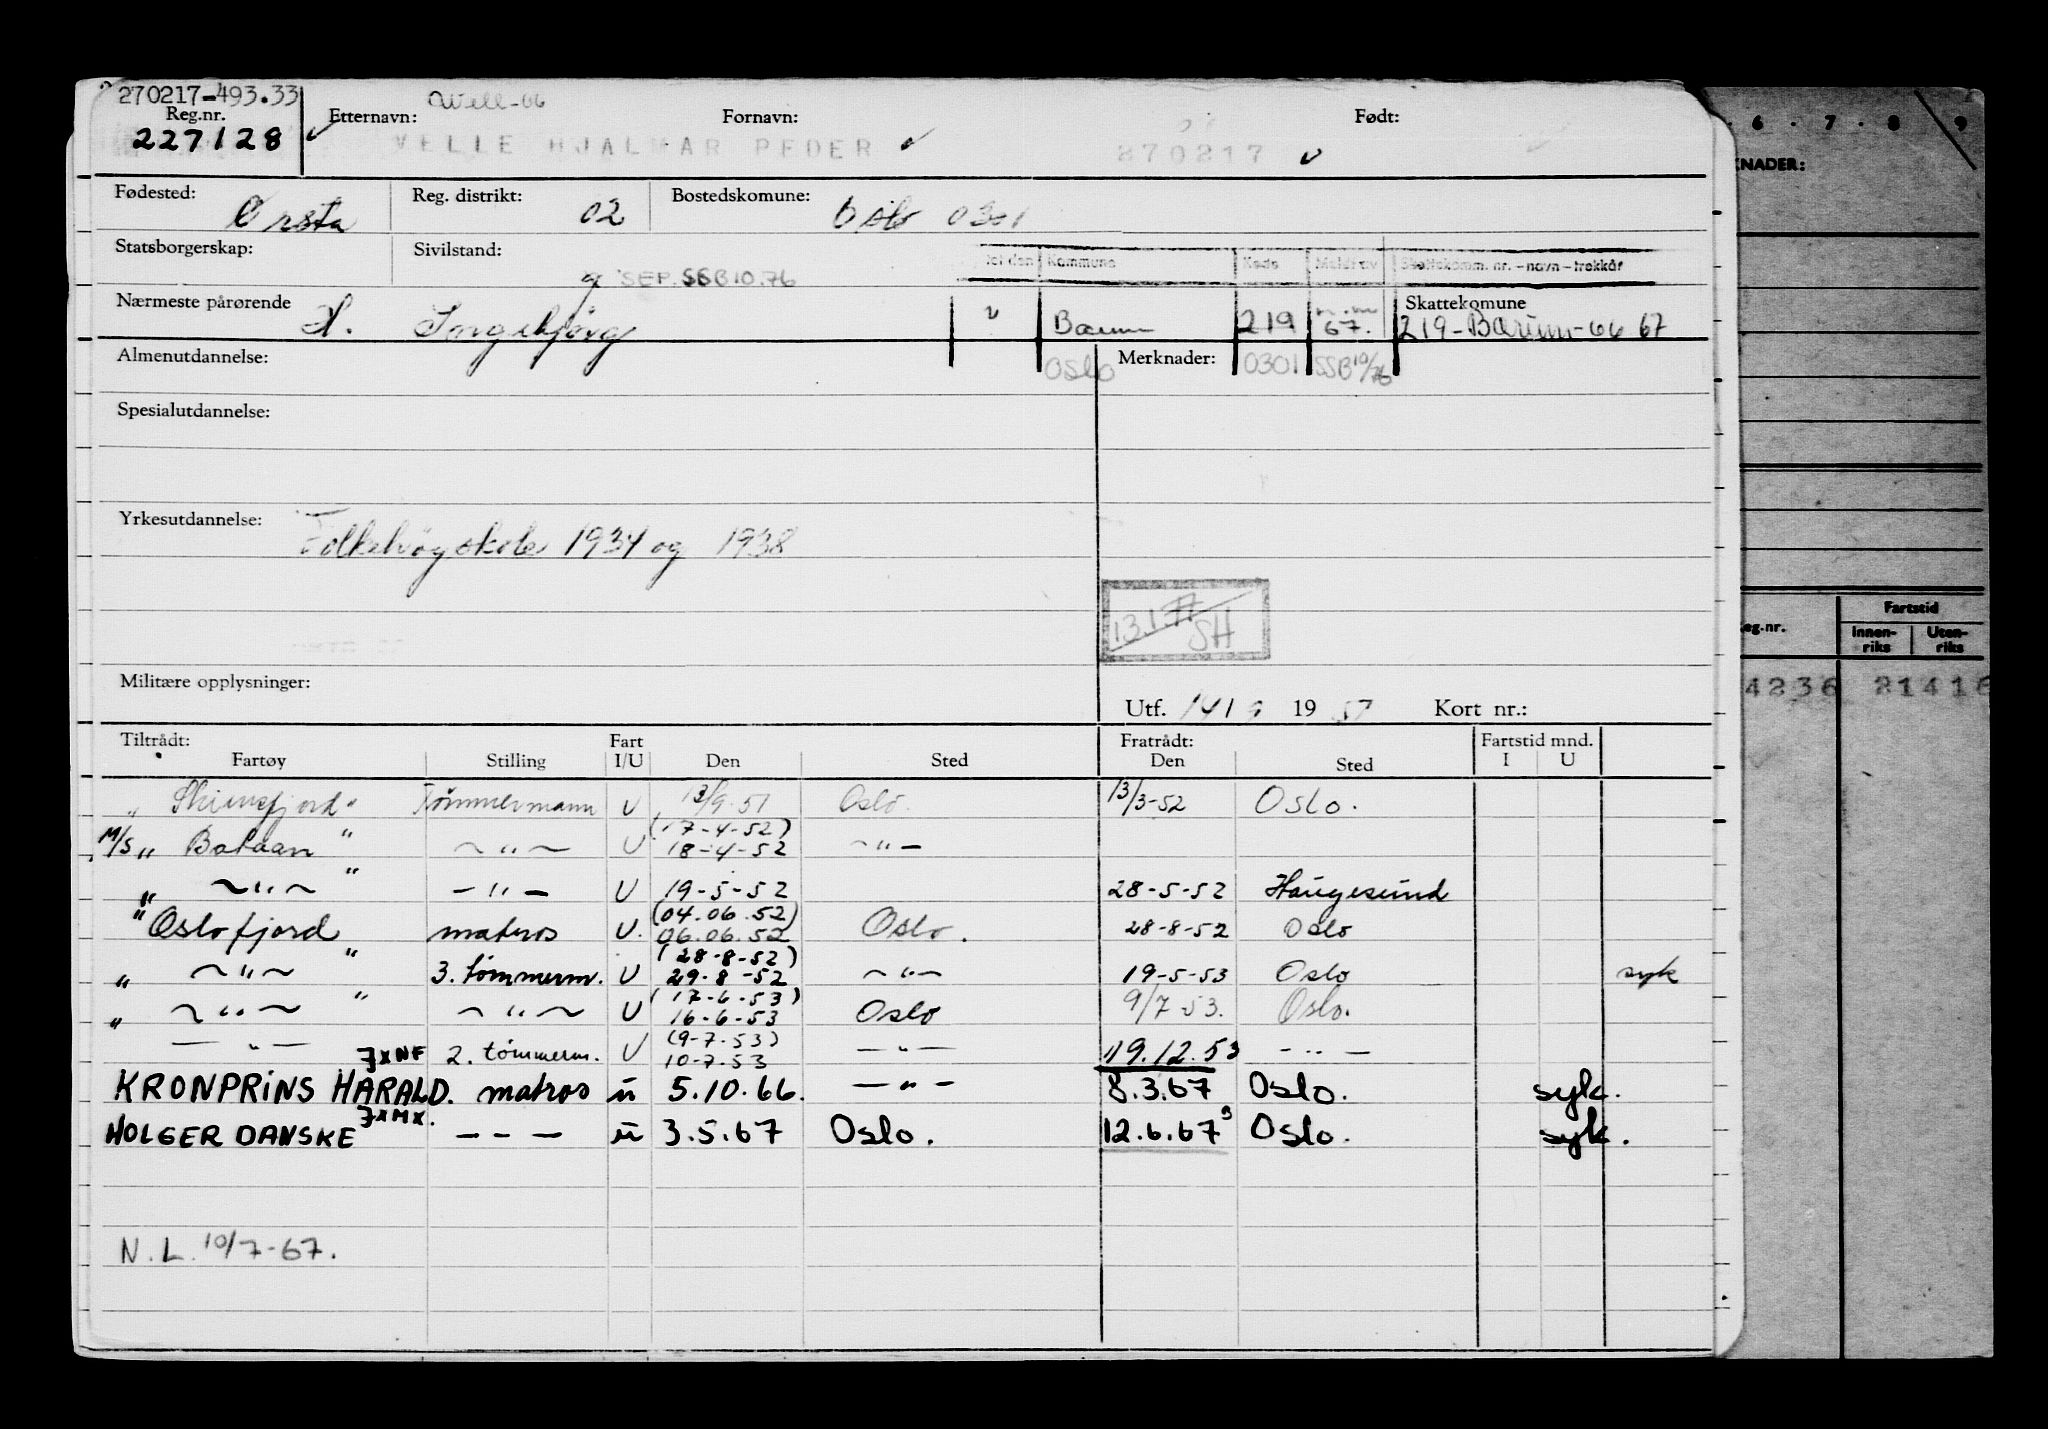 270217-493.33
Reg.nr. Etternavn: Fornavn: Født:
227128 VELLE HJALMAR PEDER 270217
Fødested: Reg. distrikt: Bostedskomune:
Ørsta 02 Oslo 0301
Statsborgerskap: Sivilstand:
g SEP. SSB 10.76
Kommune Kode Meldt av Skattekomm. nr. - navn - trekkår
Nærmeste pårørende Skattekomune
H. Ingebjørg Bærum 219 67. 219-Bærum-66 67
Almenutdannelse: Oslo Merknader: 0301 SSB 10/76
Spesialutdannelse:
Yrkesutdannelse: Folkehøgskole 1934 og 1938
13.1.77 SH
Militære opplysninger:
Utf. 14/9 1957 Kort nr.:
Tiltrådt: Fart Fratrådt: Fartstid mnd.
Fartøy Stilling I/U Den Sted Den Sted I U
" Skiensfjord " Tømmermann U 13/9-51 Oslo. 13/3-52 Oslo.
(17-4-52)
M/S " Bataan " ~ " ~ U 18-4-52 ~ " —
" ~ " ~ " — " — U 19-5-52 28-5-52 Haugesund
(04.06.52)
" Oslofjord matros U. 06.06.52 Oslo. 28-8-52 Oslo
(28-8-52)
" ~ " ~ " 3. tømmerm. U 29-8-52 ~ " — 19-5-53 Oslo syk
(17-6-53)
" ~ " ~ " ~ " ~ U 16-6-53 Oslo 9/7-53. Oslo.
(9-7-53)
— " — 2. tømmerm. U 10-7-53 — " — 19.12.53 — " —
JXNF
KRONPRINS HARALD. matros u 5.10.66. — " — 8.3.67 Oslo. syk.
JXMX.
HOLGER DANSKE — — — u 3.5.67 Oslo. 12.6.67 Oslo. syk.
N.L. 10/7-67.
6 . 7 . 8 9
KNADER:
eg.nr. Fartstid
Innen-riks Uten-riks
4236 21416